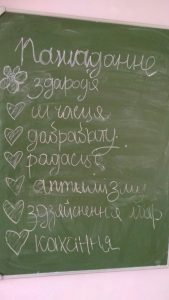 Пажаданне
здароўя
шчасця
дабрабыту
радасці
аптымізму
здзяйснення мар
кахання